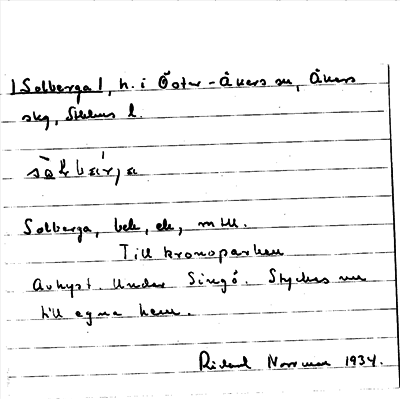 [Solberga], h. i Öster-Åkers sn, Åkers
skg, Sthlms l.
Solberga, bek, ek, mtl.
Till kronoparken
Avhyst. Under Singö. Styckes nu
till egna hem.
Rickard Norrman 1934.